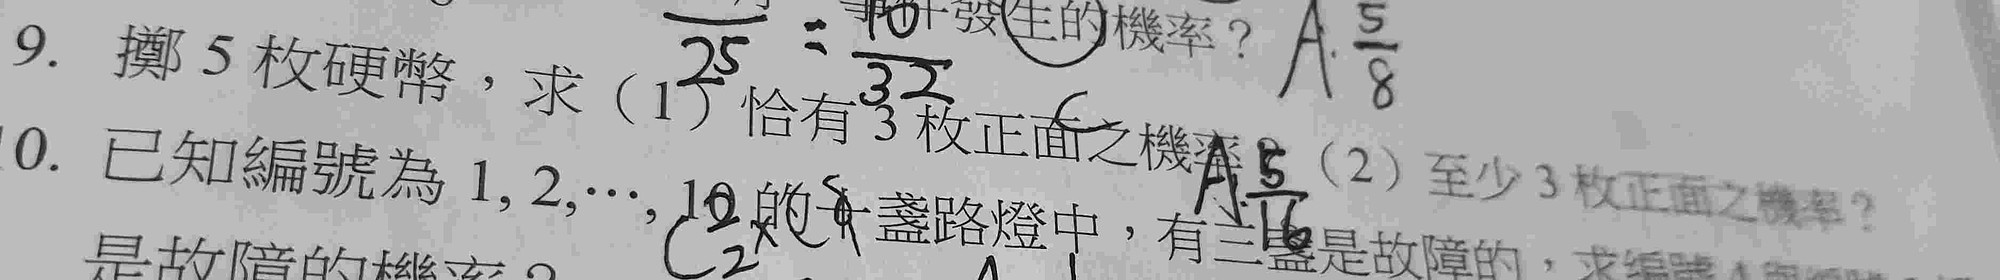 發生的機率？ A. 5/8
25 = 10/32
9. 擲 5 枚硬幣，求（1）恰有 3 枚正面之機率？（2）至少 3 枚正面之機率？
A. 5/16
10. 已知編號為 1, 2,⋯, 10 的十盞路燈中，有三盞是故障的，求編號
是故障的機率？